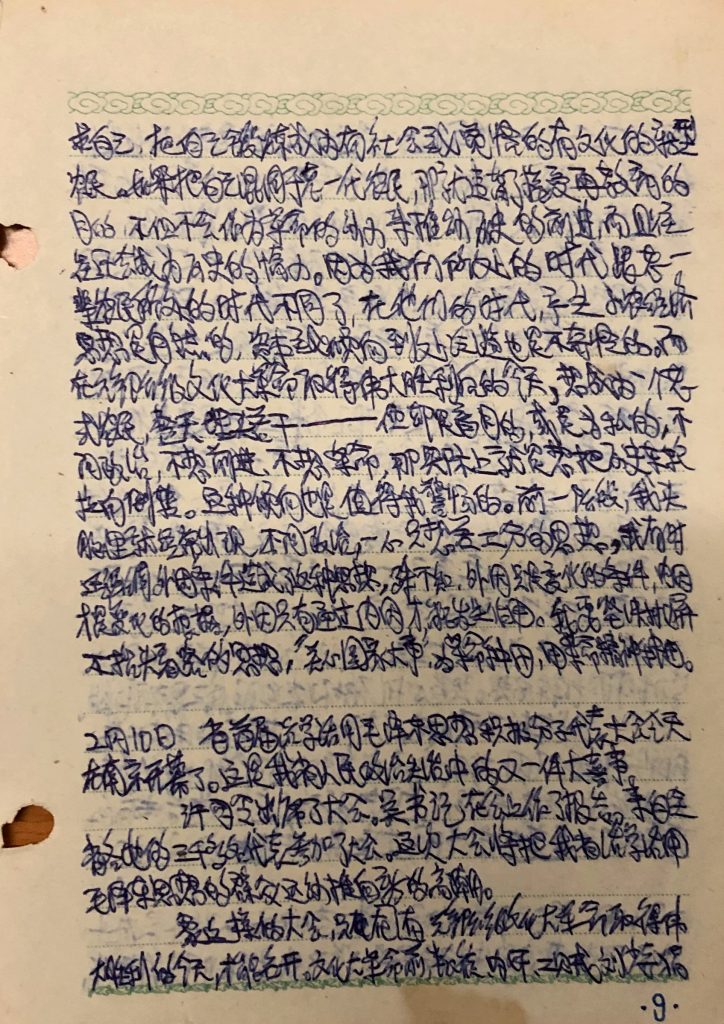 是自己,把自己锻炼成为有社会主义觉悟的有文化的新型
农民。如果把自己混同于老一代农民,那就违背了接受再教育的
目的,不但不会作为革命的动力来推动历史的前进,而且
会成为历史的惰力。因为我们所处的时代跟老一
辈农民所处的时代不同了,在他们的时代,产生小农经济
思想是自然的,资本主义倾向到处泛滥也是不奇怪的。而
在无产阶级文化大革命取得伟大胜利的今天,若成为一个老
式农民,整天干——但却是盲目的,或是为私的,不
问政治,不想前进,不想革命,那实际上就是想把历史车轮
拉向倒转。这种倾向也是值得我警惕的。前一阶段,我头
脑里就经常出现不问政治,一心只想差工分的思想,我有时
还强调外因条件造成了这种思想,殊不知,外因是变化的条件,内因
才是变化的根据,外因只有通过内因才能发生作用。我要坚决摒
不抬头看路的思想,“关心国家大事”,为革命种田,用革命精神种地。
2月10日 省首届活学活用毛泽东思想积极分子代表大会今天
在南京开幕了。这是我省人民政治生活中的又一件大喜事。
许司令出席了大会。吴书记在会上作了报告。来自全
省各地的三千多名代表参加了大会。这次大会将把我省活学活用
毛泽东思想的群众运动推向新的高潮。
象这样的大会,只有在无产阶级文化大革命取得伟
大胜利的今天,才能召开。文化大革命前,叛徒、内奸、工贼刘少奇
·9·